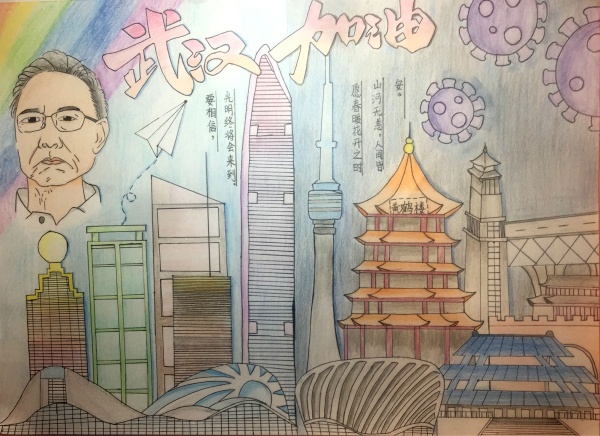 武汉加油
要相信，
光明终将会来到
愿春暖花开之时
山河无恙，人间皆
安。
黄鹤楼